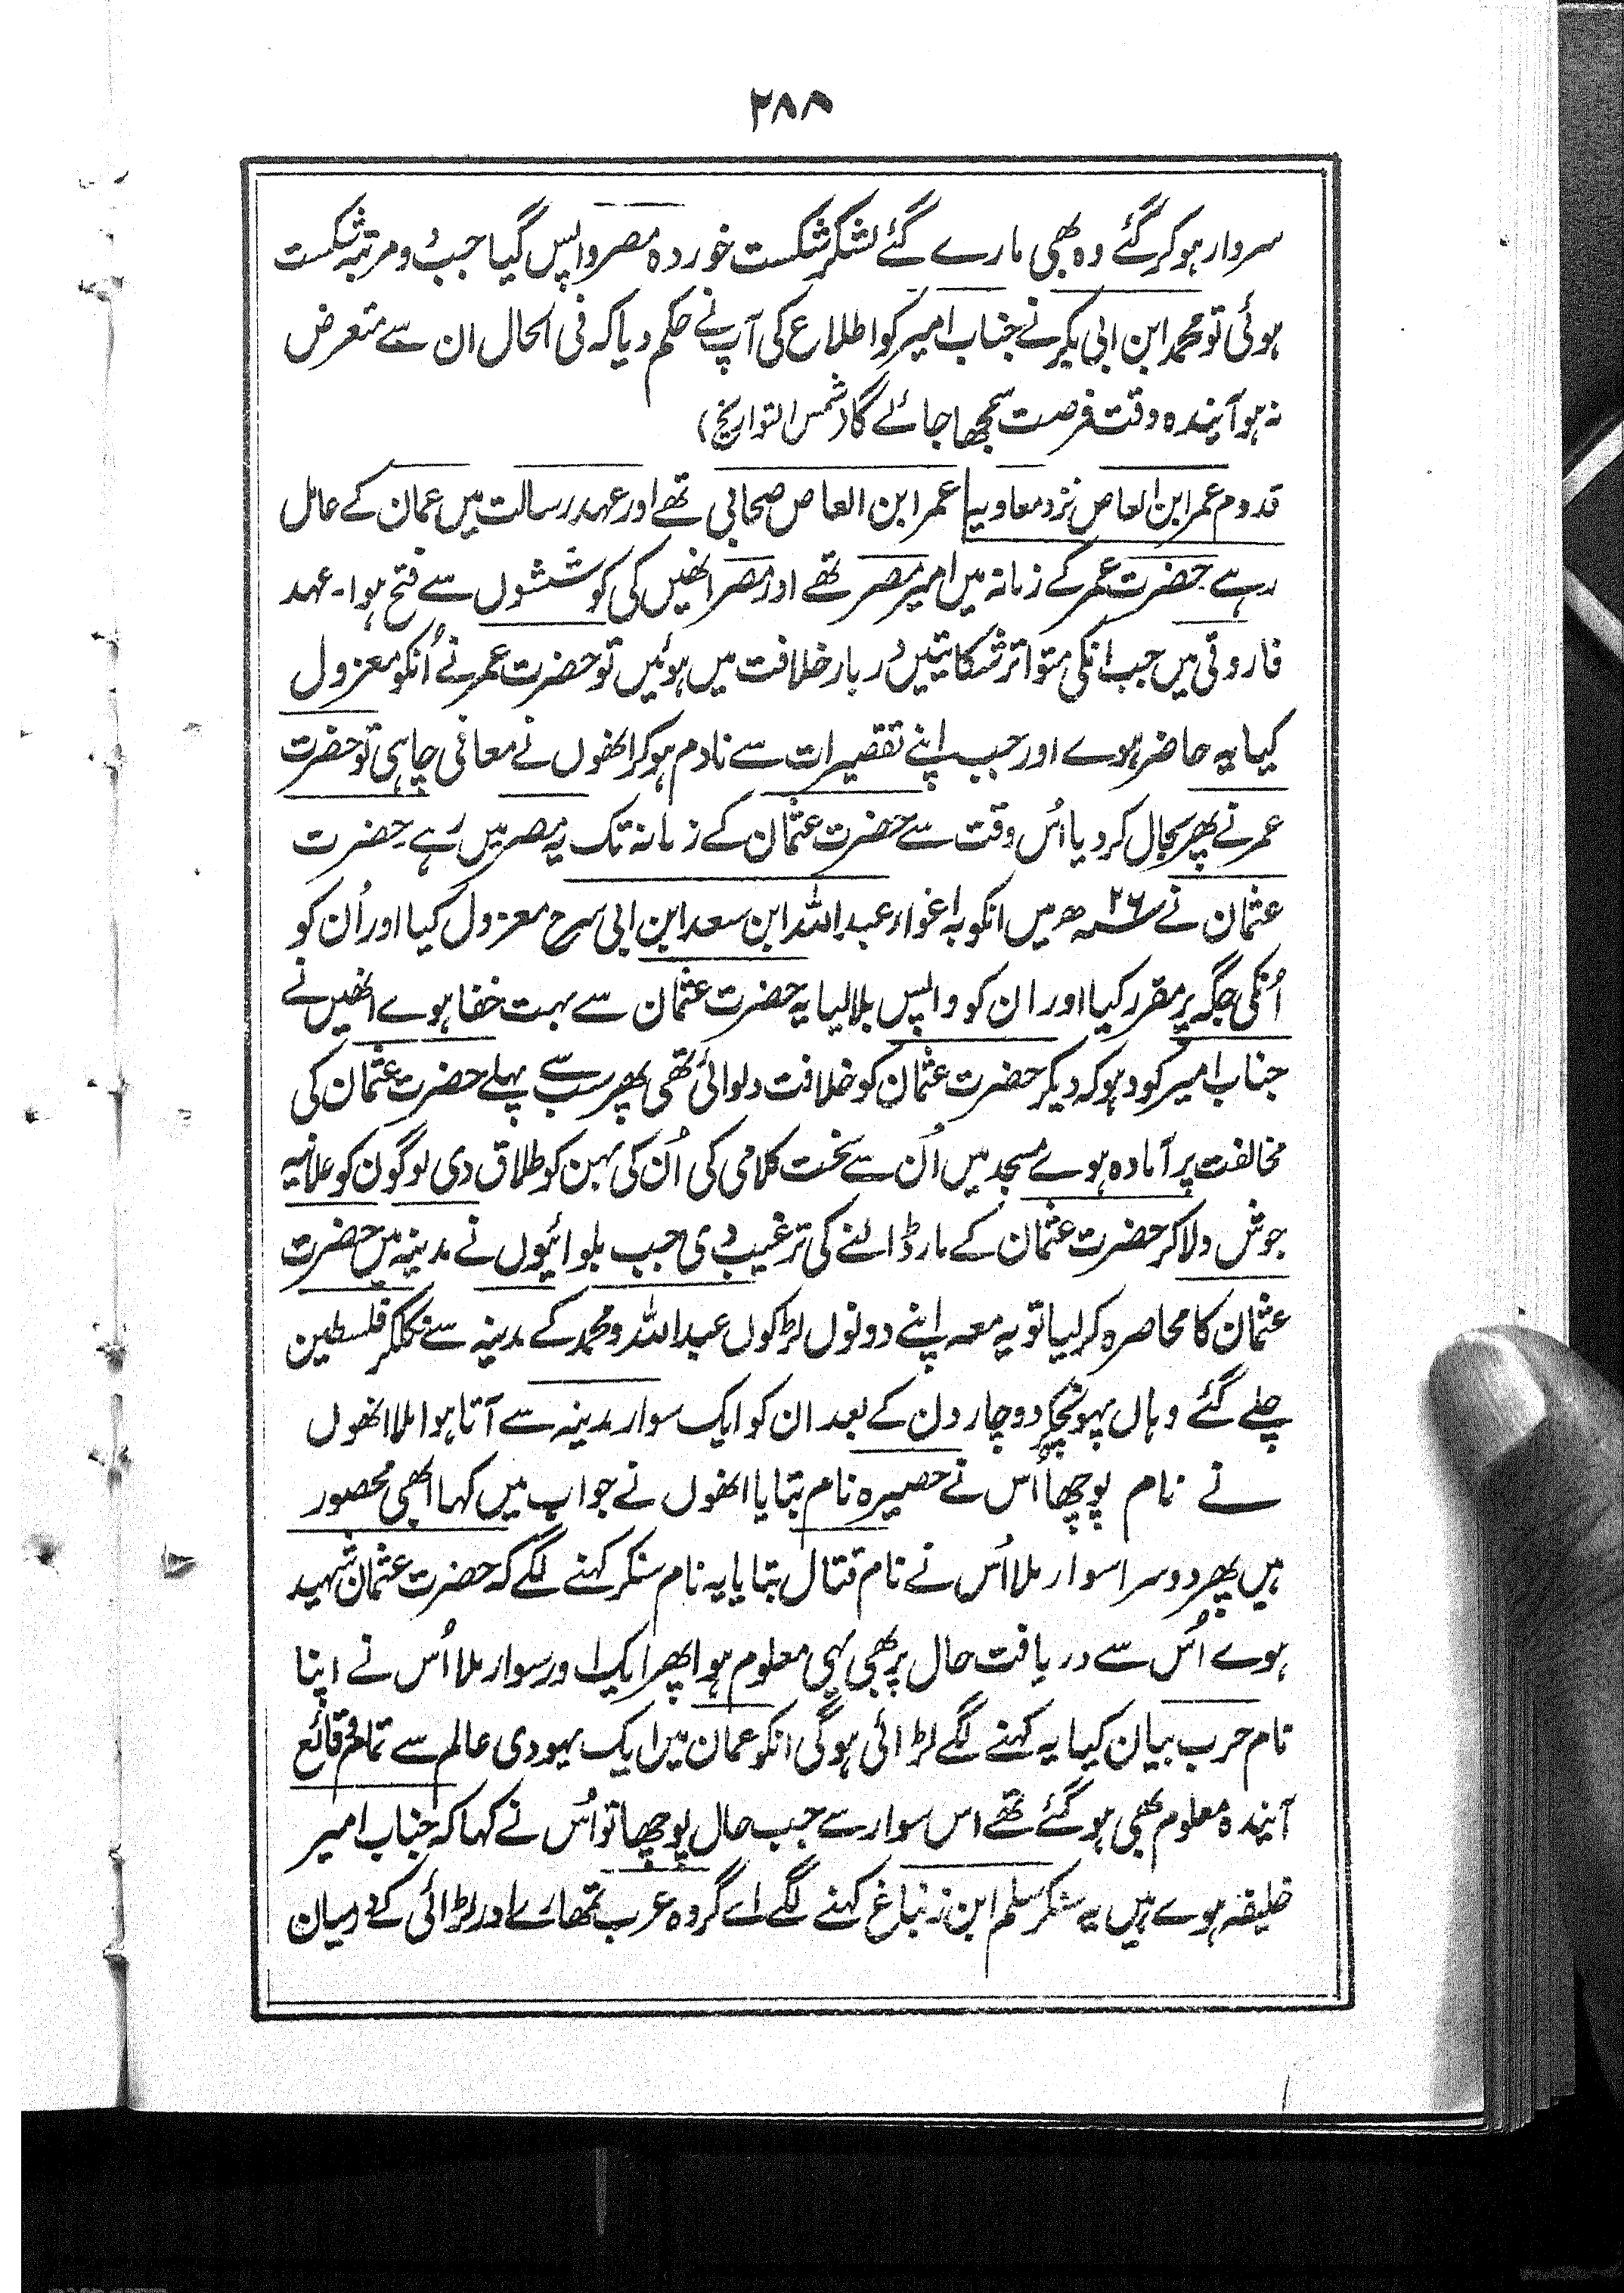 ۲۸۸
سردار ہوکر گئے وہ بھی مارے گئے لشکر شکست خوردہ مصر واپس گیا جب دو مرتبہ شکست
ہوئی تو محمد ابن ابی بکر نے جناب امیر کو اطلاع کی آپ نے حکم دیا کہ فی الحال ان سے متعرض
نہ ہو آیندہ وقت فرصت سمجھا جائے گا (شمس التواریخ)
قدوم عمر ابن العاص نزد معاویہ عمر ابن العاص صحابی تھے اور عہد رسالت میں عمان کے عامل
رہے حضرت عمر کے زمانہ میں امیر مصر تھے اور مصر انھیں کی کوششوں سے فتح ہوا۔ عہد
فاروقی میں جب انکی متواتر شکایتیں دربار خلافت میں ہوئیں تو حضرت عمر نے اُنکو معزول
کیا یہ حاضر ہوے اور جب اپنے تقصیرات سے نادم ہوکر انھوں نے معافی چاہی تو حضرت
عمر نے پھر بحال کر دیا اُس وقت سے حضرت عثمان کے زمانہ تک یہ مصر میں رہے حضرت
عثمان نے ۲۶ھ میں انکو بہ اغواء عبد اللہ ابن سعد ابن ابی سرح معزول کیا اور اُن کو
اُنکی جگہ پر مقرر کیا اور ان کو واپس بلا لیا یہ حضرت عثمان سے بہت خفا ہوے انھیں نے
جناب امیر کو دہوکہ دیکر حضرت عثمان کو خلافت دلوائی تھی پھر سب سے پہلے حضرت عثمان کی
مخالفت پر آمادہ ہوے مسجد میں اُن سے سخت کلامی کی اُن کی بہن کو طلاق دی لوگون کو علانیہ
جوش دلا کر حضرت عثمان کے مار ڈالنے کی ترغیب دی جب بلوائیوں نے مدینہ میں حضرت
عثمان کا محاصرہ کر لیا تو یہ معہ اپنے دونوں لڑکوں عبد اللہ و محمد کے مدینہ سے نکلکر فلسطین
چلے گئے وہاں پہونچکر دو چار دن کے بعد ان کو ایک سوار مدینہ سے آتا ہوا ملا انھوں
نے نام پوچھا اُس نے حصیرہ نام بتایا انھوں نے جواب میں کہا ابھی محصور
ہیں پھر دوسرا سوار ملا اُس نے نام قتال بتایا یہ نام سنکر کہنے لگے کہ حضرت عثمان شہید
ہوے اُس سے دریافت حال پر بھی یہی معلوم ہوا پھر ایک اور سوار ملا اُس نے اپنا
نام حرب بیان کیا یہ کہنے لگے لڑائی ہوگی انکو عمان میں ایک یہودی عالم سے تمام وقائع
آیندہ معلوم بھی ہو گئے تھے اس سوار سے جب حال پوچھا تو اُس نے کہا کہ جناب امیر
خلیفہ ہوے ہیں یہ سنکر سلم ابن زنباغ کہنے لگے اے گروہ عرب تمھارے اور لڑائی کے درمیان